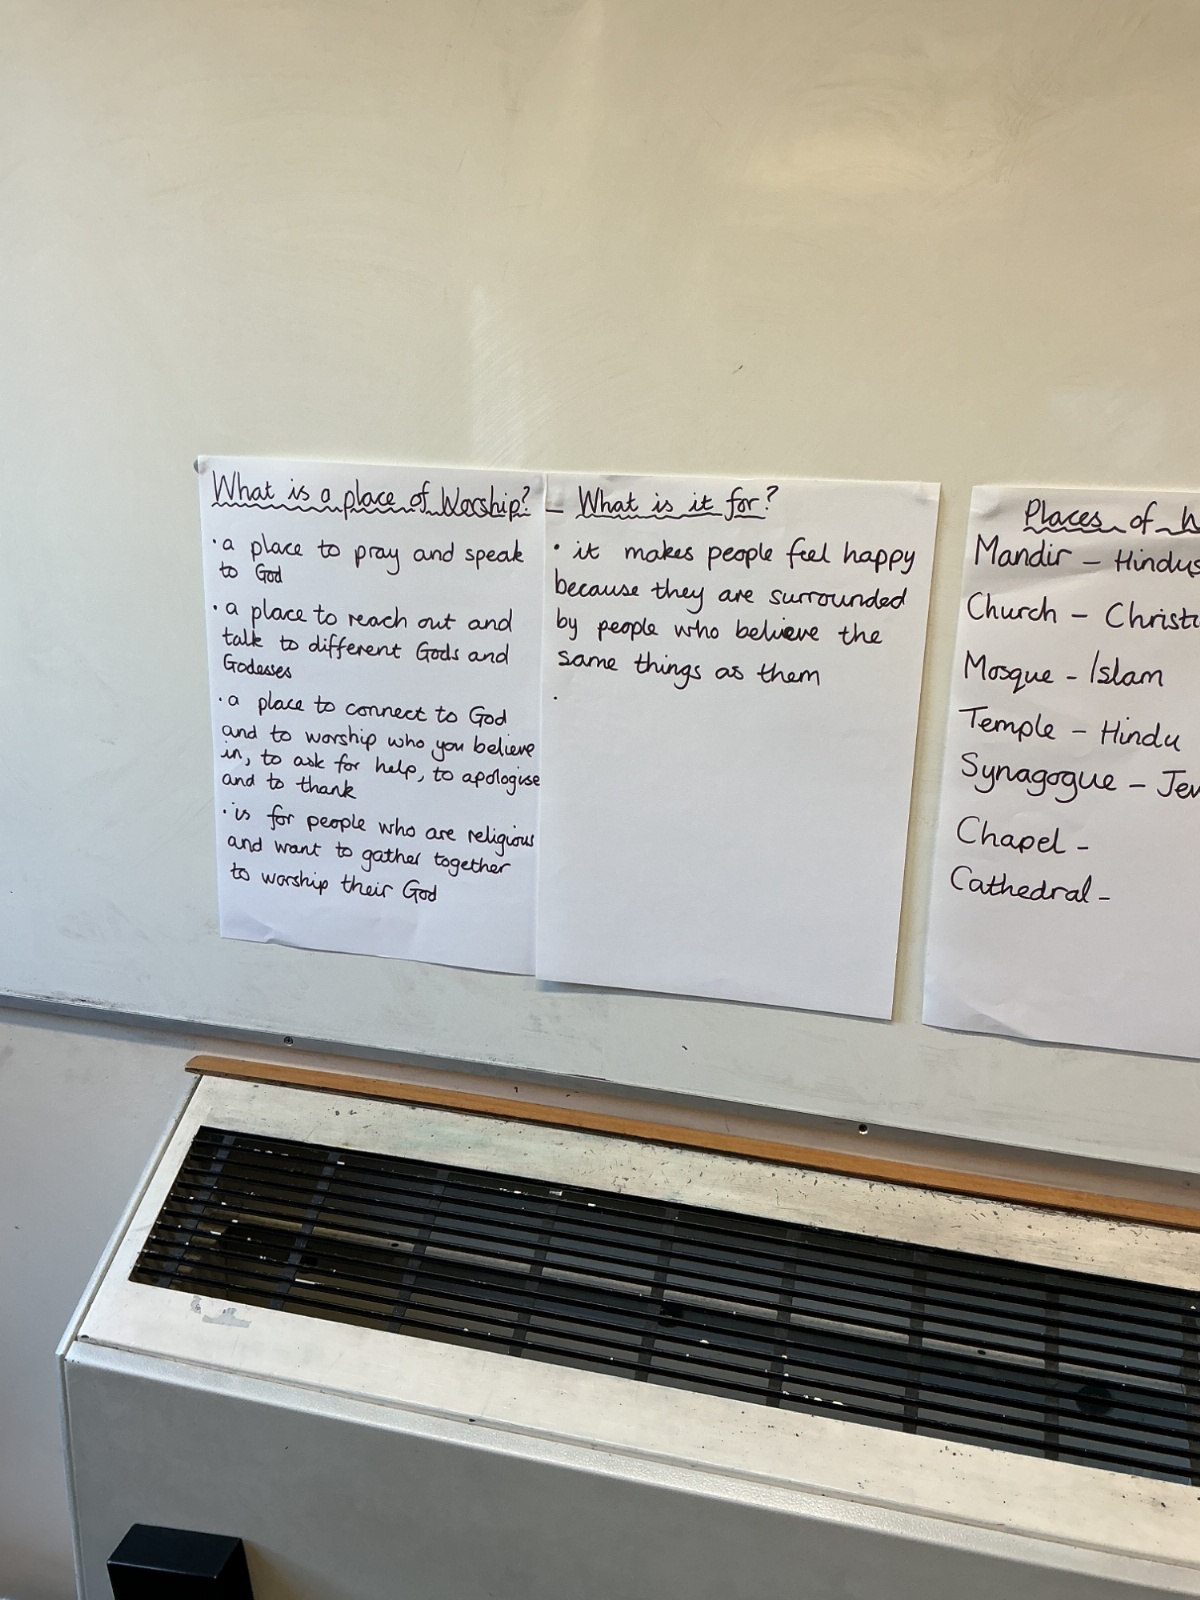 What is a place of Worship?
• a place to pray and speak
to God
• a place to reach out and
talk to different Gods and
Godesses
• a place to connect to God
and to worship who you believe
in, to ask for help, to apologise
and to thank
• is for people who are religious
and want to gather together
to worship their God
What is it for?
• it makes people feel happy
because they are surrounded
by people who believe the
same things as them
•
Places of W
Mandir - Hindus
Church - Christi
Mosque - Islam
Temple - Hindu
Synagogue - Jew
Chapel -
Cathedral -